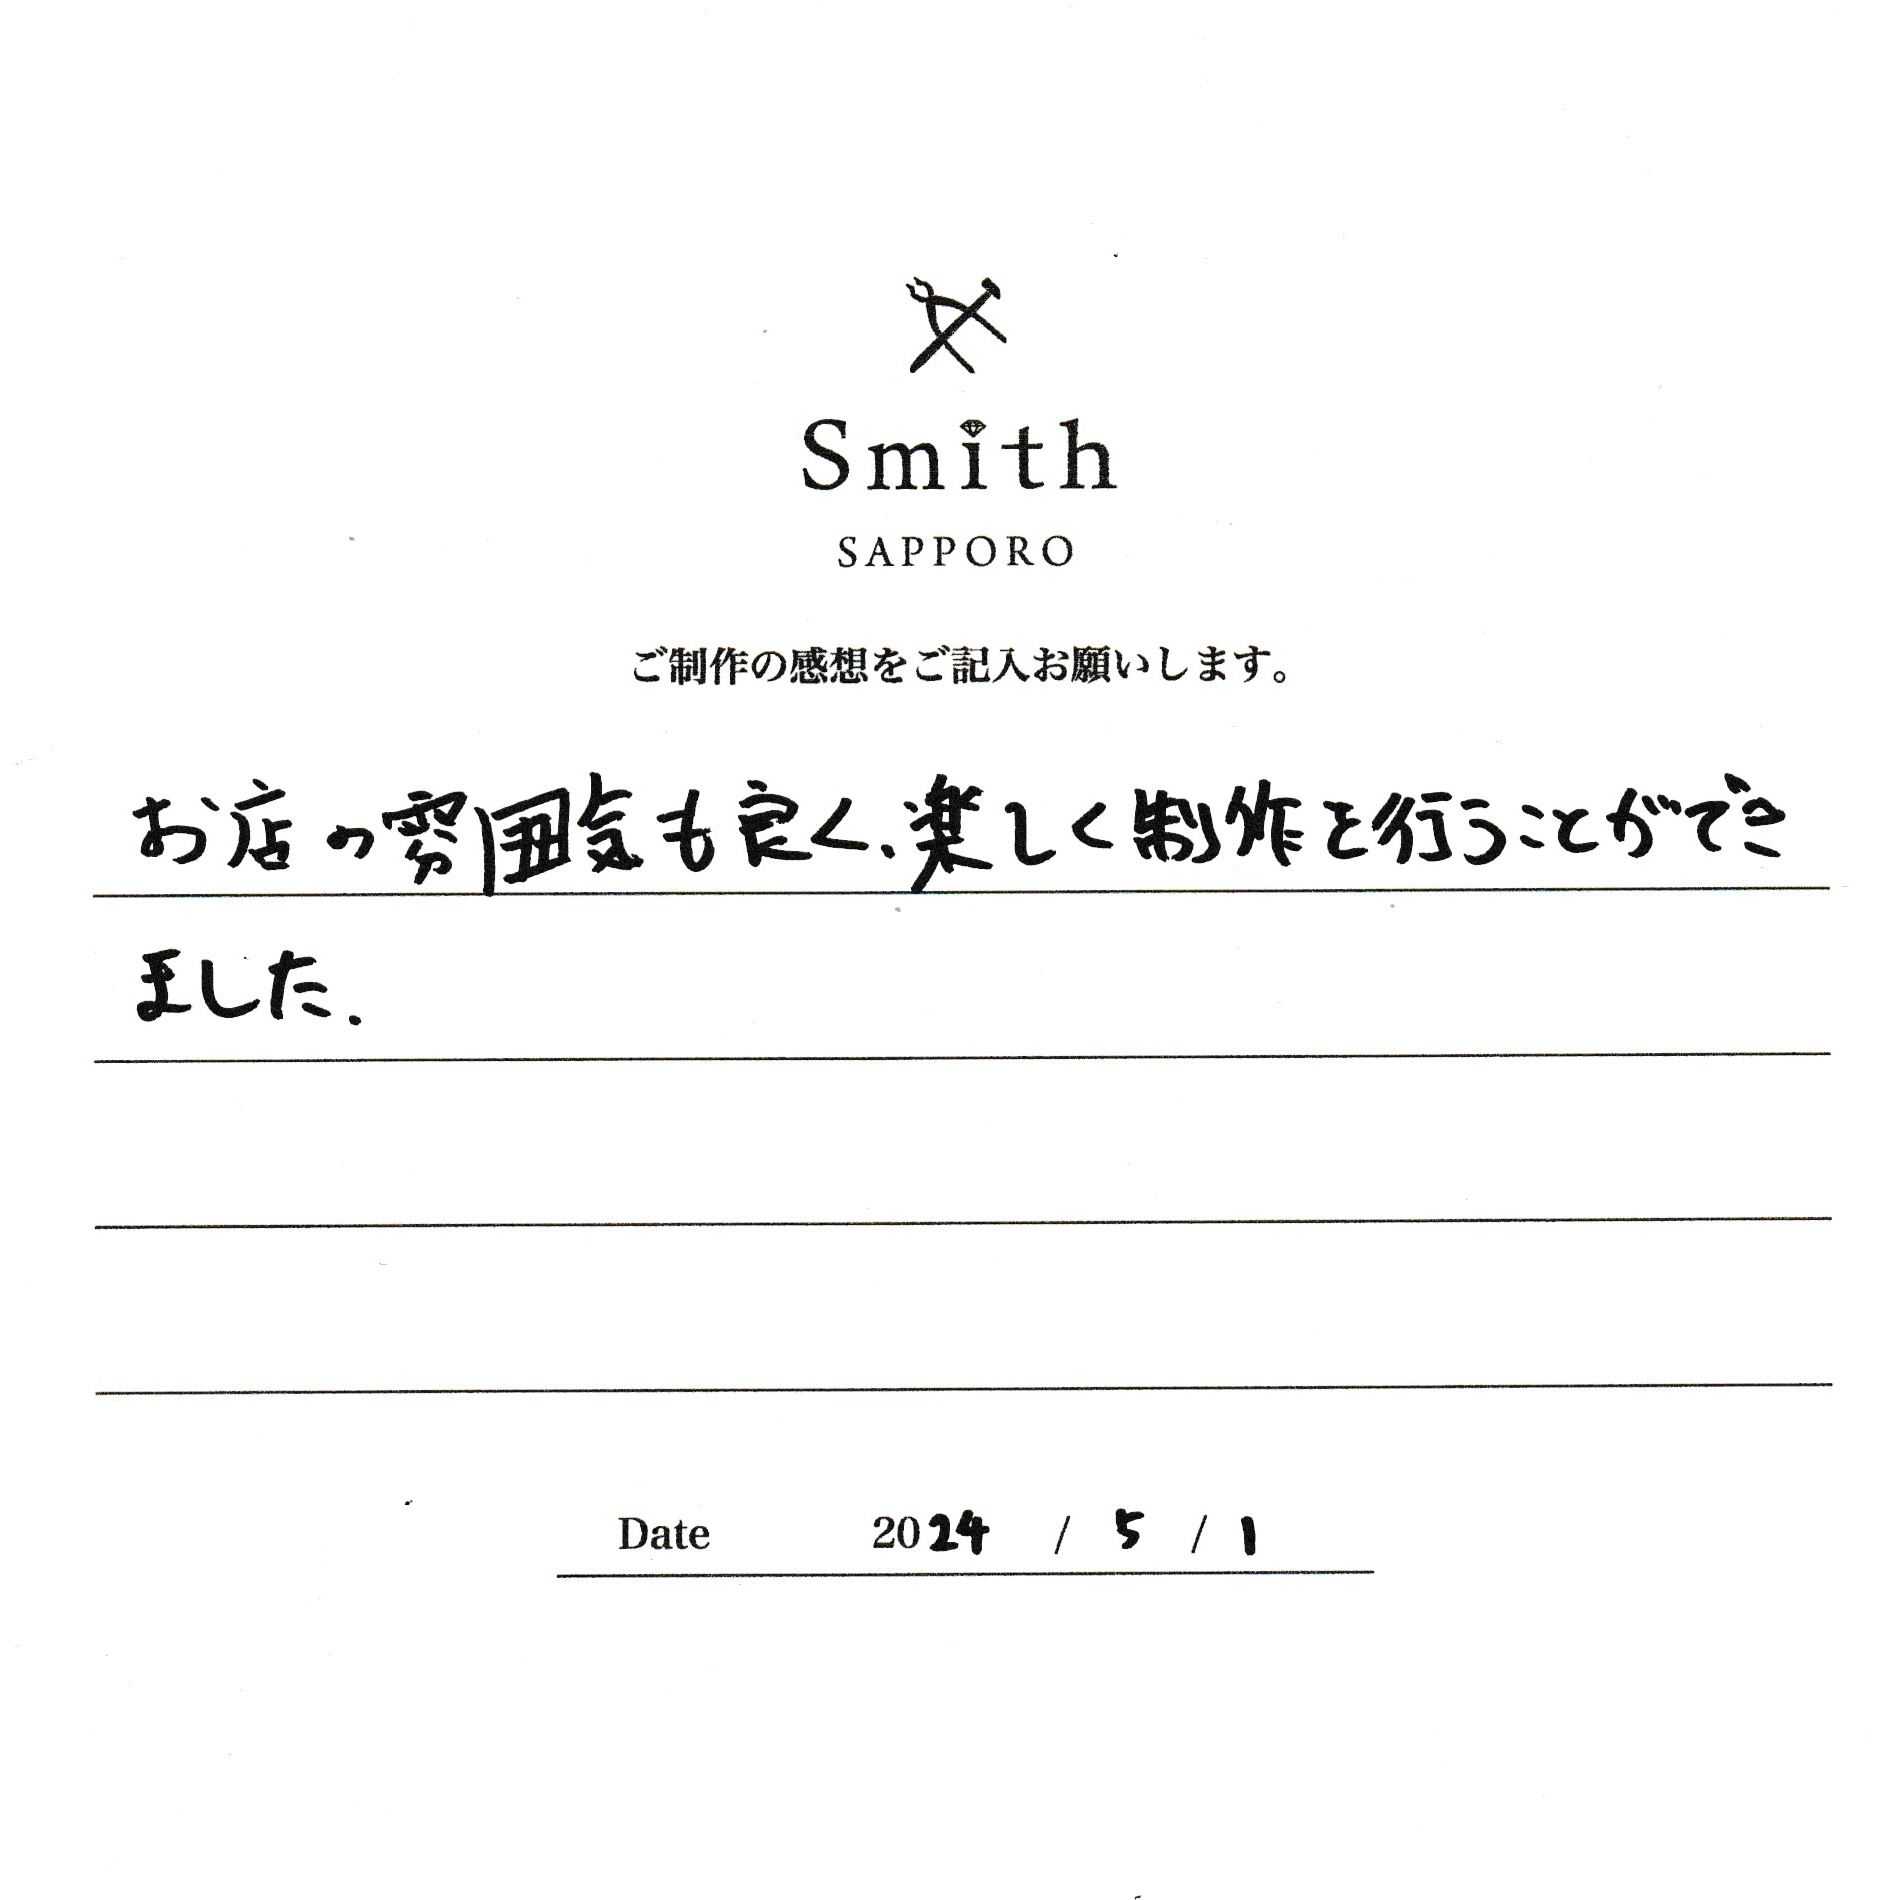 Smith
SAPPORO
ご制作の感想をご記入お願いします。
お店の雰囲気も良く、楽しく制作を行うことができ
ました.
Date 2024 / 5 / 1